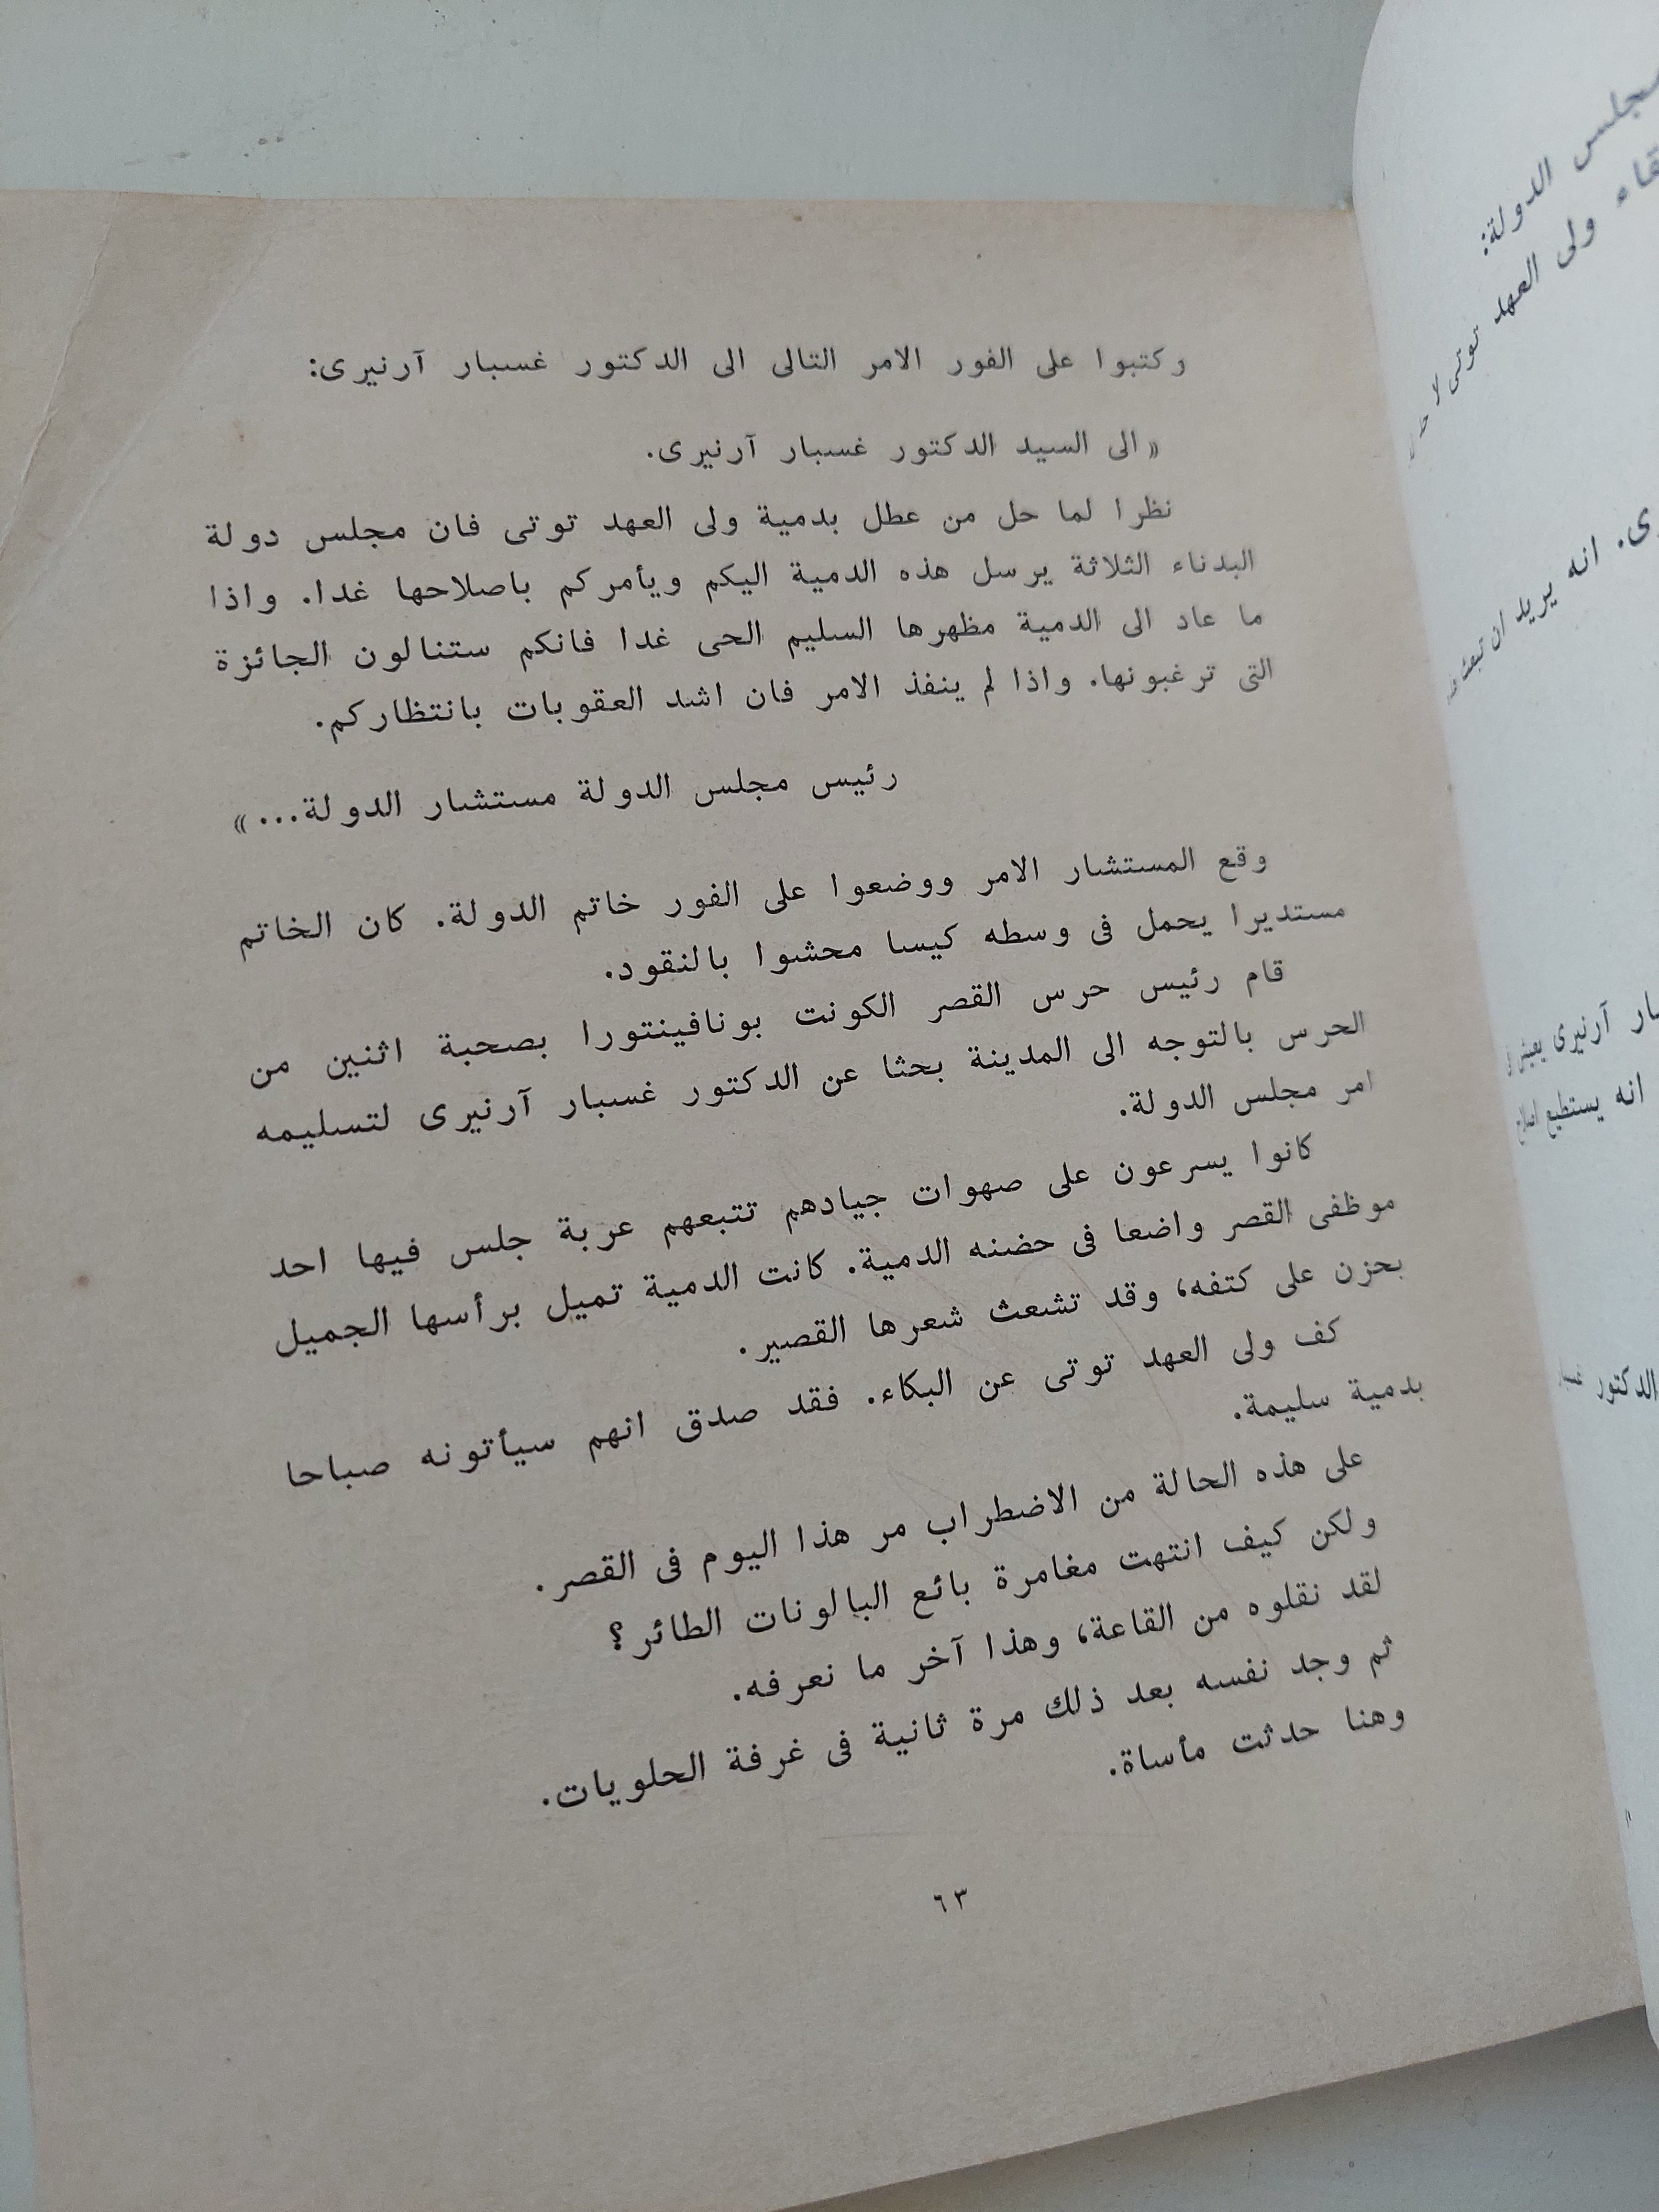 وكتبوا على الفور الامر التالى الى الدكتور غسبار آرنيرى:
« الى السيد الدكتور غسبار آرنيرى.
نظرا لما حل من عطل بدمية ولى العهد توتى فان مجلس دولة
البدناء الثلاثة يرسل هذه الدمية اليكم ويأمركم باصلاحها غدا. واذا
ما عاد الى الدمية مظهرها السليم الحى غدا فانكم ستنالون الجائزة
التى ترغبونها. واذا لم ينفذ الامر فان اشد العقوبات بانتظاركم.
رئيس مجلس الدولة مستشار الدولة... »
وقع المستشار الامر ووضعوا على الفور خاتم الدولة. كان الخاتم
مستديرا يحمل فى وسطه كيسا محشوا بالنقود.
قام رئيس حرس القصر الكونت بونافينتورا بصحبة اثنين من
الحرس بالتوجه الى المدينة بحثا عن الدكتور غسبار آرنيرى لتسليمه
امر مجلس الدولة.
كانوا يسرعون على صهوات جيادهم تتبعهم عربة جلس فيها احد
موظفى القصر واضعا فى حضنه الدمية. كانت الدمية تميل برأسها الجميل
بحزن على كتفه، وقد تشعث شعرها القصير.
كف ولى العهد توتى عن البكاء. فقد صدق انهم سيأتونه صباحا
بدمية سليمة.
على هذه الحالة من الاضطراب مر هذا اليوم فى القصر.
ولكن كيف انتهت مغامرة بائع البالونات الطائر؟
لقد نقلوه من القاعة، وهذا آخر ما نعرفه.
ثم وجد نفسه بعد ذلك مرة ثانية فى غرفة الحلويات.
وهنا حدثت مأساة.
٦٣
مجلس الدولة:
ولى العهد توتى لا
انه يريد ان تبعث
آرنيرى يعيش
انه يستطيع اصلاح
الدكتور